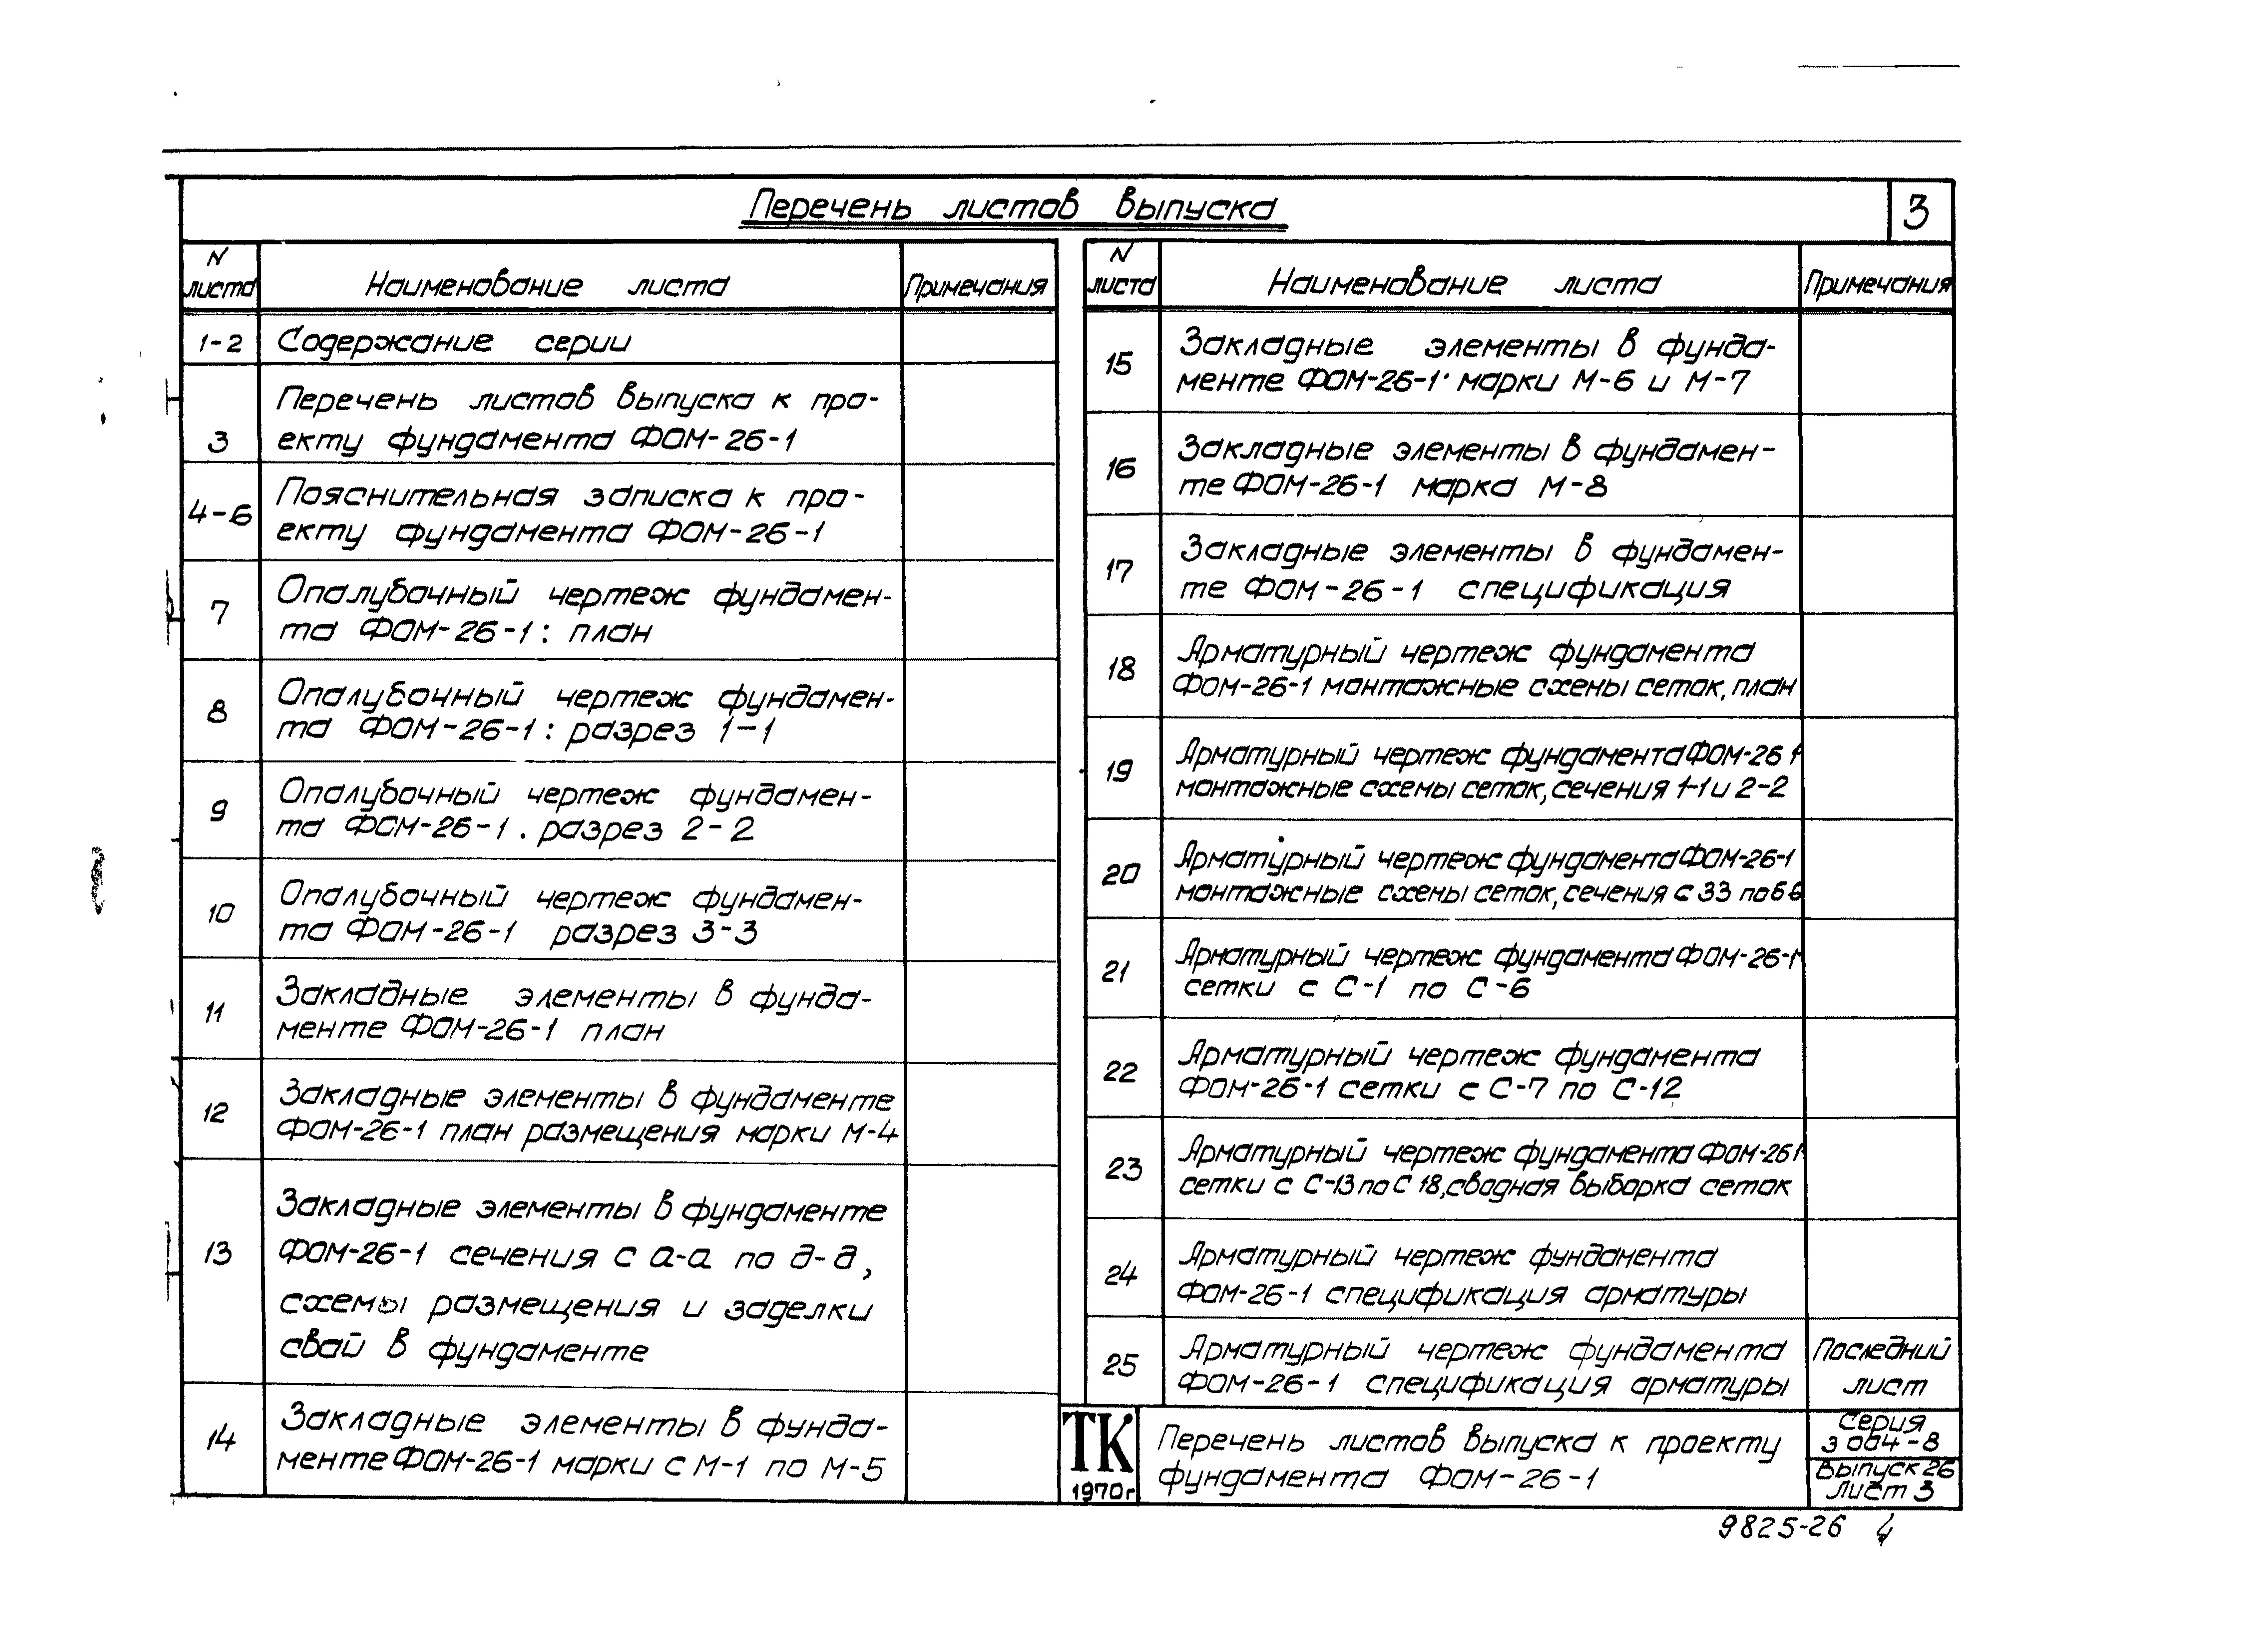 Перечень листов выпуска
3
N листа
Наименование листа
Примечания
1-2
Содержание серии
3
Перечень листов выпуска к про-
екту фундамента ФОМ-26-1
4-6
Пояснительная записка к про-
екту фундамента ФОМ-26-1
7
Опалубочный чертеж фундамен-
та ФОМ-26-1: план
8
Опалубочный чертеж фундамен-
та ФОМ-26-1: разрез 1-1
9
Опалубочный чертеж фундамен-
та ФОМ-26-1. разрез 2-2
10
Опалубочный чертеж фундамен-
та ФОМ-26-1 разрез 3-3
11
Закладные элементы в фунда-
менте ФОМ-26-1 план
12
Закладные элементы в фундаменте
ФОМ-26-1 план размещения марки М-4
13
Закладные элементы в фундаменте
ФОМ-26-1 сечения с а-а по д-д,
схемы размещения и заделки
свай в фундаменте
14
Закладные элементы в фунда-
менте ФОМ-26-1 марки с М-1 по М-5
N листа
Наименование листа
Примечания
15
Закладные элементы в фунда-
менте ФОМ-26-1 марки М-6 и М-7
16
Закладные элементы в фундамен-
те ФОМ-26-1 марка М-8
17
Закладные элементы в фундамен-
те ФОМ-26-1 спецификация
18
Арматурный чертеж фундамента
ФОМ-26-1 монтажные схемы сеток, план
19
Арматурный чертеж фундамента ФОМ-26 1
монтажные схемы сеток, сечения 1-1 и 2-2
20
Арматурный чертеж фундамента ФОМ-26-1
монтажные схемы сеток, сечения с 33 по 66
21
Арматурный чертеж фундамента ФОМ-26-1
сетки с С-1 по С-6
22
Арматурный чертеж фундамента
ФОМ-26-1 сетки с С-7 по С-12
23
Арматурный чертеж фундамента ФОМ-26 1
сетки с С-13 по С 18, сводная выборка сеток
24
Арматурный чертеж фундамента
ФОМ-26-1 спецификация арматуры
25
Арматурный чертеж фундамента
ФОМ-26-1 спецификация арматуры
Последний
лист
ТК
1970г
Перечень листов выпуска к проекту
фундамента ФОМ-26-1
Серия
3 004-8
Выпуск 26
Лист 3
9825-26 4